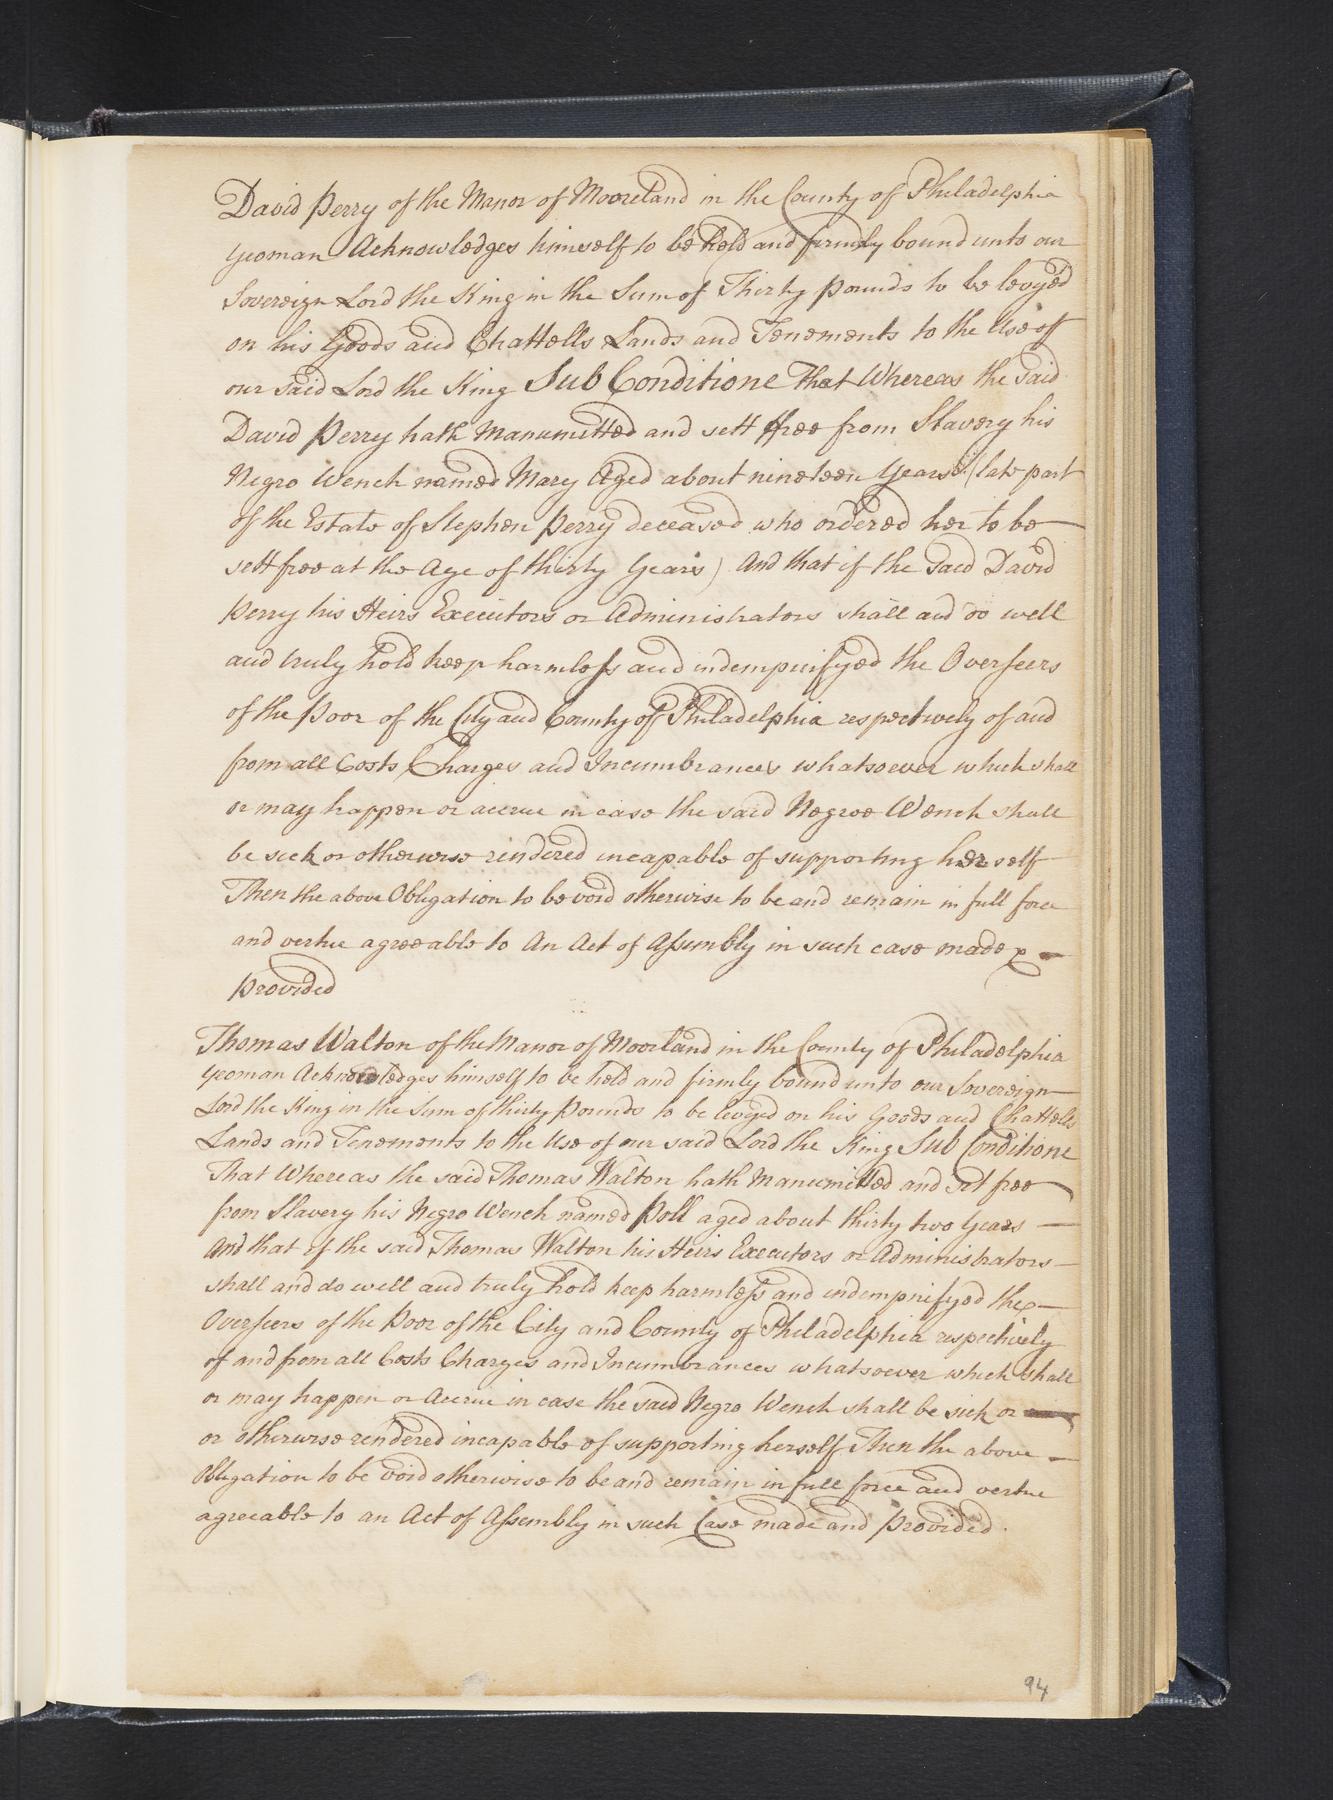 David Perry of the Manor of Mooreland in the County of Philadelphia
yeoman Acknowledges himself to be held and firmly bound unto our
Sovereign Lord the King in the Sum of Thirty pounds to be levyed
on his Goods and Chattells Lands and Tenements to the Use of
our said Lord the King Sub Conditione That Whereas the said
David Perry hath Manumitted and sett ffree from Slavery his
Negro Wench named Mary Aged about nineteen Years (late part
of the Estate of Stephen Perry deceased who ordered her to be
sett free at the Age of thirty Years) And that if the said David
Perry his Heirs Executors or Administrators shall and do well
and truly hold keep harmless and indempnifyed the Overseers
of the Poor of the City and County of Philadelphia respectively of and
from all Costs Charges and Incumbrances whatsoever which shall
or may happen or accrue in case the said Negroe Wench shall
be sick or otherwise rendered incapable of supporting herself
Then the above Obligation to be void otherwise to be and remain in full force
and vertue agreeable to An Act of Assembly in such case made &
provided
Thomas Walton of the Manor of Moorland in the County of Philadelphia
yeoman Acknowledges himself to be held and firmly bound unto our Sovereign
Lord the King in the Sum of thirty pounds to be levyed on his Goods and Chattells
Lands and Tenements to the Use of our said Lord the King Sub Conditione
That Whereas the said Thomas Walton hath Manumitted and set free
from Slavery his Negro Wench named Poll aged about thirty two Years
And that if the said Thomas Walton his Heirs Executors or Administrators
shall and do well and truly hold keep harmless and indempnifyed the
Overseers of the Poor of the City and County of Philadelphia respectively
of and from all Costs Charges and Incumbrances whatsoever which shall
or may happen or Accrue in case the said Negro Wench shall be sick or
or otherwise rendered incapable of supporting herself Then the above
Obligation to be void otherwise to be and remain in full force and vertue
agreeable to an Act of Assembly in such Case made and provided.
94